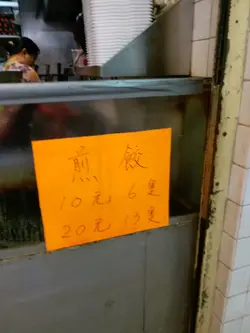 煎餃
10元 6隻
20元 13隻